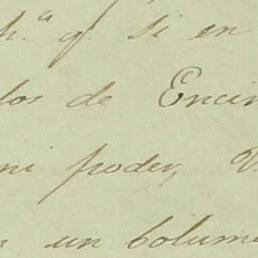 h.ª q.ᵉ si en
los de Encin
mi poder, V
un bolume